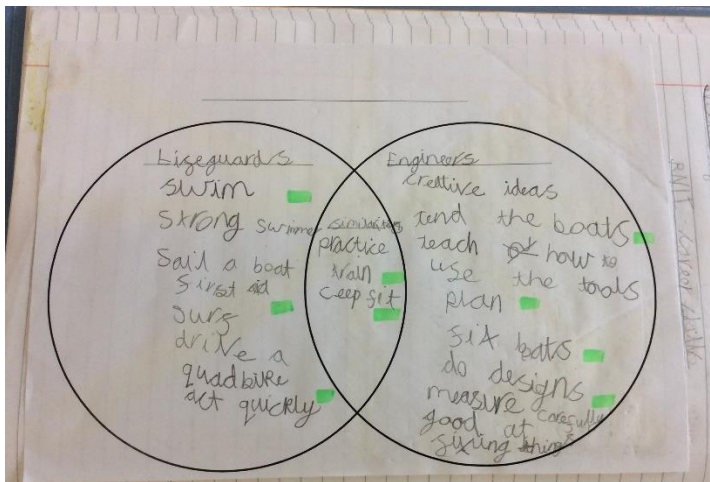 Lizeguards
swim
Strong swimmer
Sail a boat
first aid
surf
drive a
quadbike
act quickly
similarities
practice
train
ceep fit
Engineers
creative ideas
tend the boats
teach how to
use the tools
plan
fix bats
do designs
measure carefully
good at
fixing things